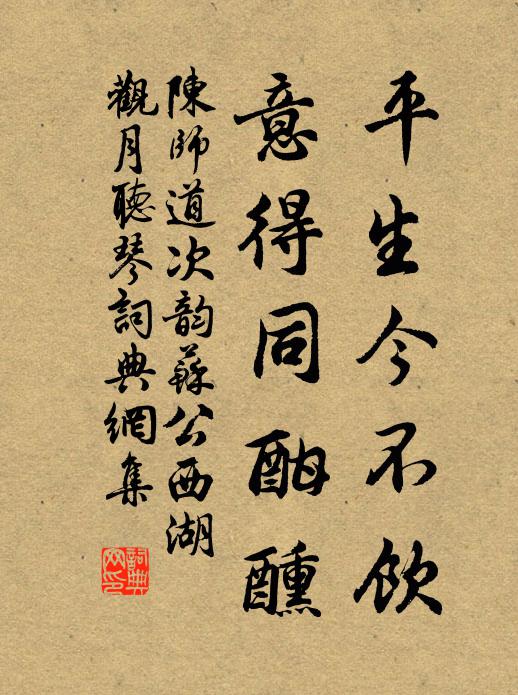 平生今不飲
意得同酣醺
陳師道次韵蘇公西湖
觀月聽琴詞典網集
詞典网印